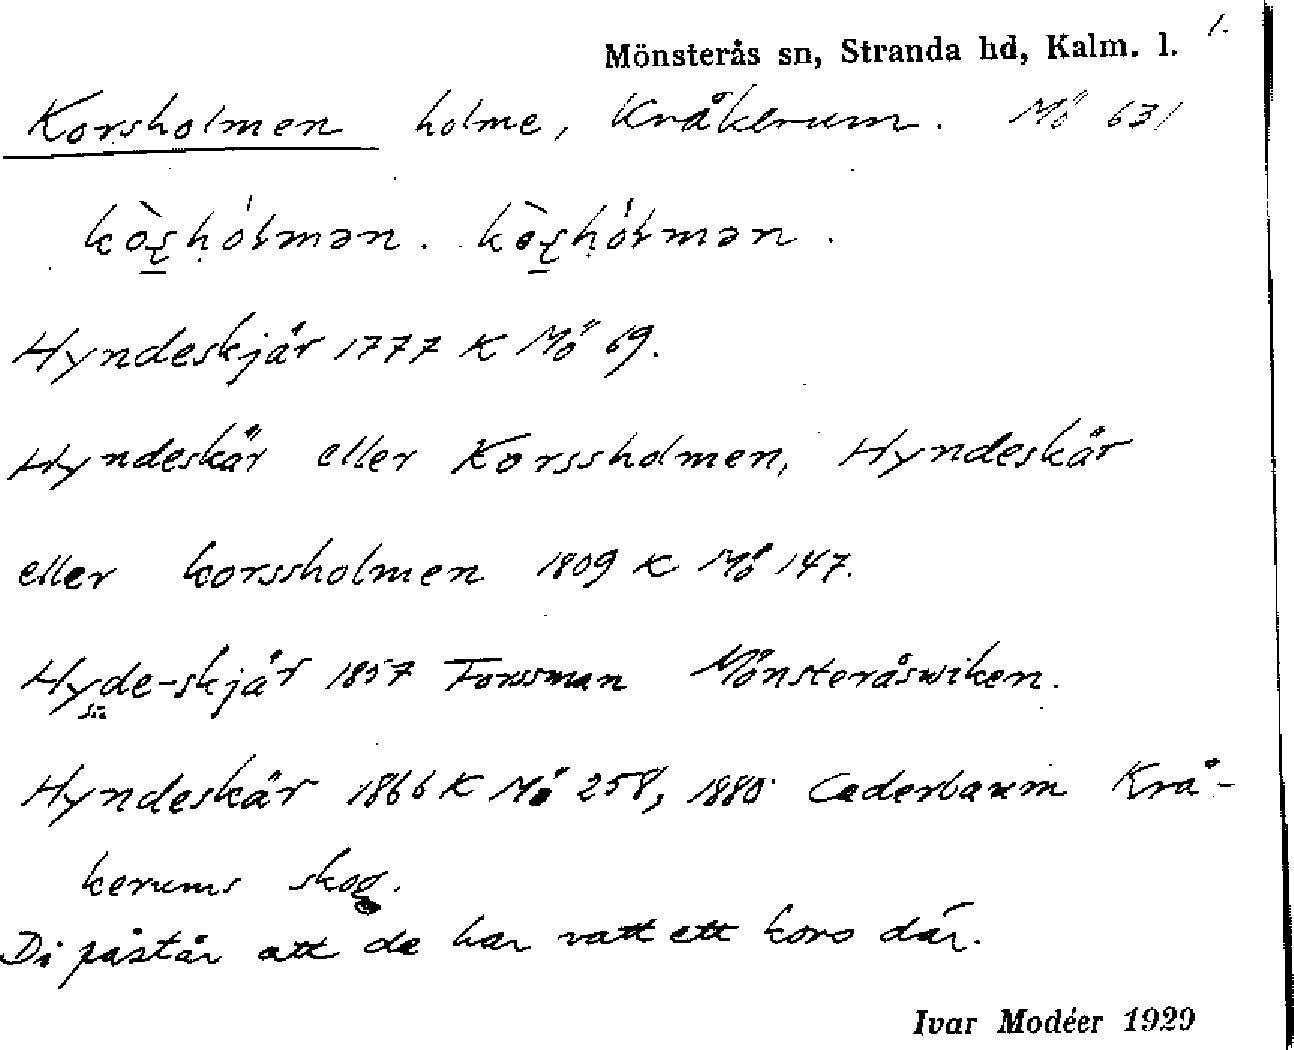 Mönsterås sn, Stranda hd, Kalm. l. 1.
Korsholmen holme, Kråkerum. Mö 631
Hyndeskjär 1777 K Mö 69.
Hyndeskär eller Korssholmen, Hyndeskär
eller korssholmen 1809 K Mö 147.
Hyde-skjär 1857 Forssman Mönsteråswiken.
Hyndeskär 1866 K Mö 258, 1880 Cederbaum Krå-
kerums skog.
Di påstår att de har vatt ett kors där.
Ivar Modéer 1929